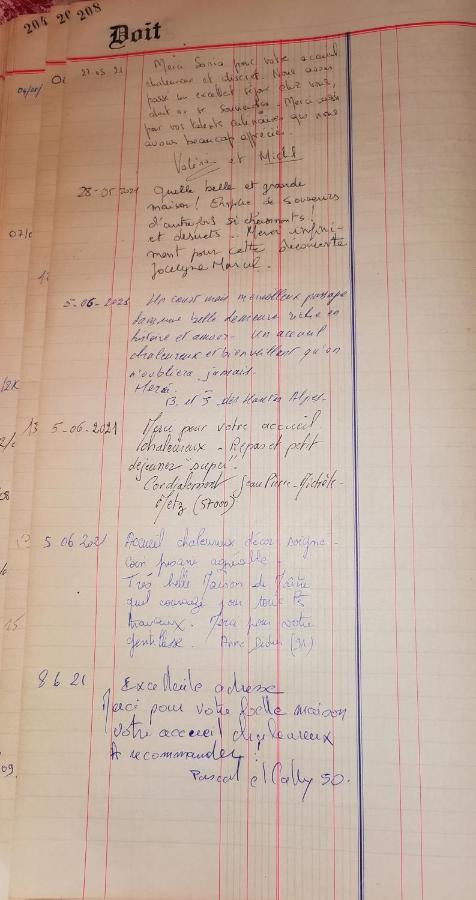 204 20 208
Doit
27.05.21 Merci Sonia pour votre accueil
chaleureux et discret. Nous avons
passé un excellent séjour chez vous,
dont on se souviendra. Merci aussi
pour vos talents culinaires que nous
avons beaucoup apprécié.
Valérie et Michel
28-05-2021 Quelle belle et grande
maison! Emplie de souvenirs
d'autrefois si charmants!
et désuets... Merci infini-
ment pour cette découverte
Jocelyne Marcel.
5-06-2021 Un court mais merveilleux passage
dans une belle demeure riche en
histoire et amour. Un accueil
chaleureux et bienveillant qu'on
n'oubliera jamais.
Merci.
B. et J. des Hautes Alpes.
5-06-2021 Merci pour votre accueil
chaleureux - Repas et petit
déjeuner "super".
Cordialement Jean Pierre - Michèle -
Metz (57000)
5 06 2021 Accueil chaleureux décor soigné -
coin piscine agréable -
Très belle Maison de Maître
quel courage pour tous ts
travaux. Merci pour votre
gentillesse. Anne Didier (91)
8 6 21 Excellente adresse
Merci pour votre belle maison
votre accueil chaleureux
A recommander!
Pascal et Cathy 50.